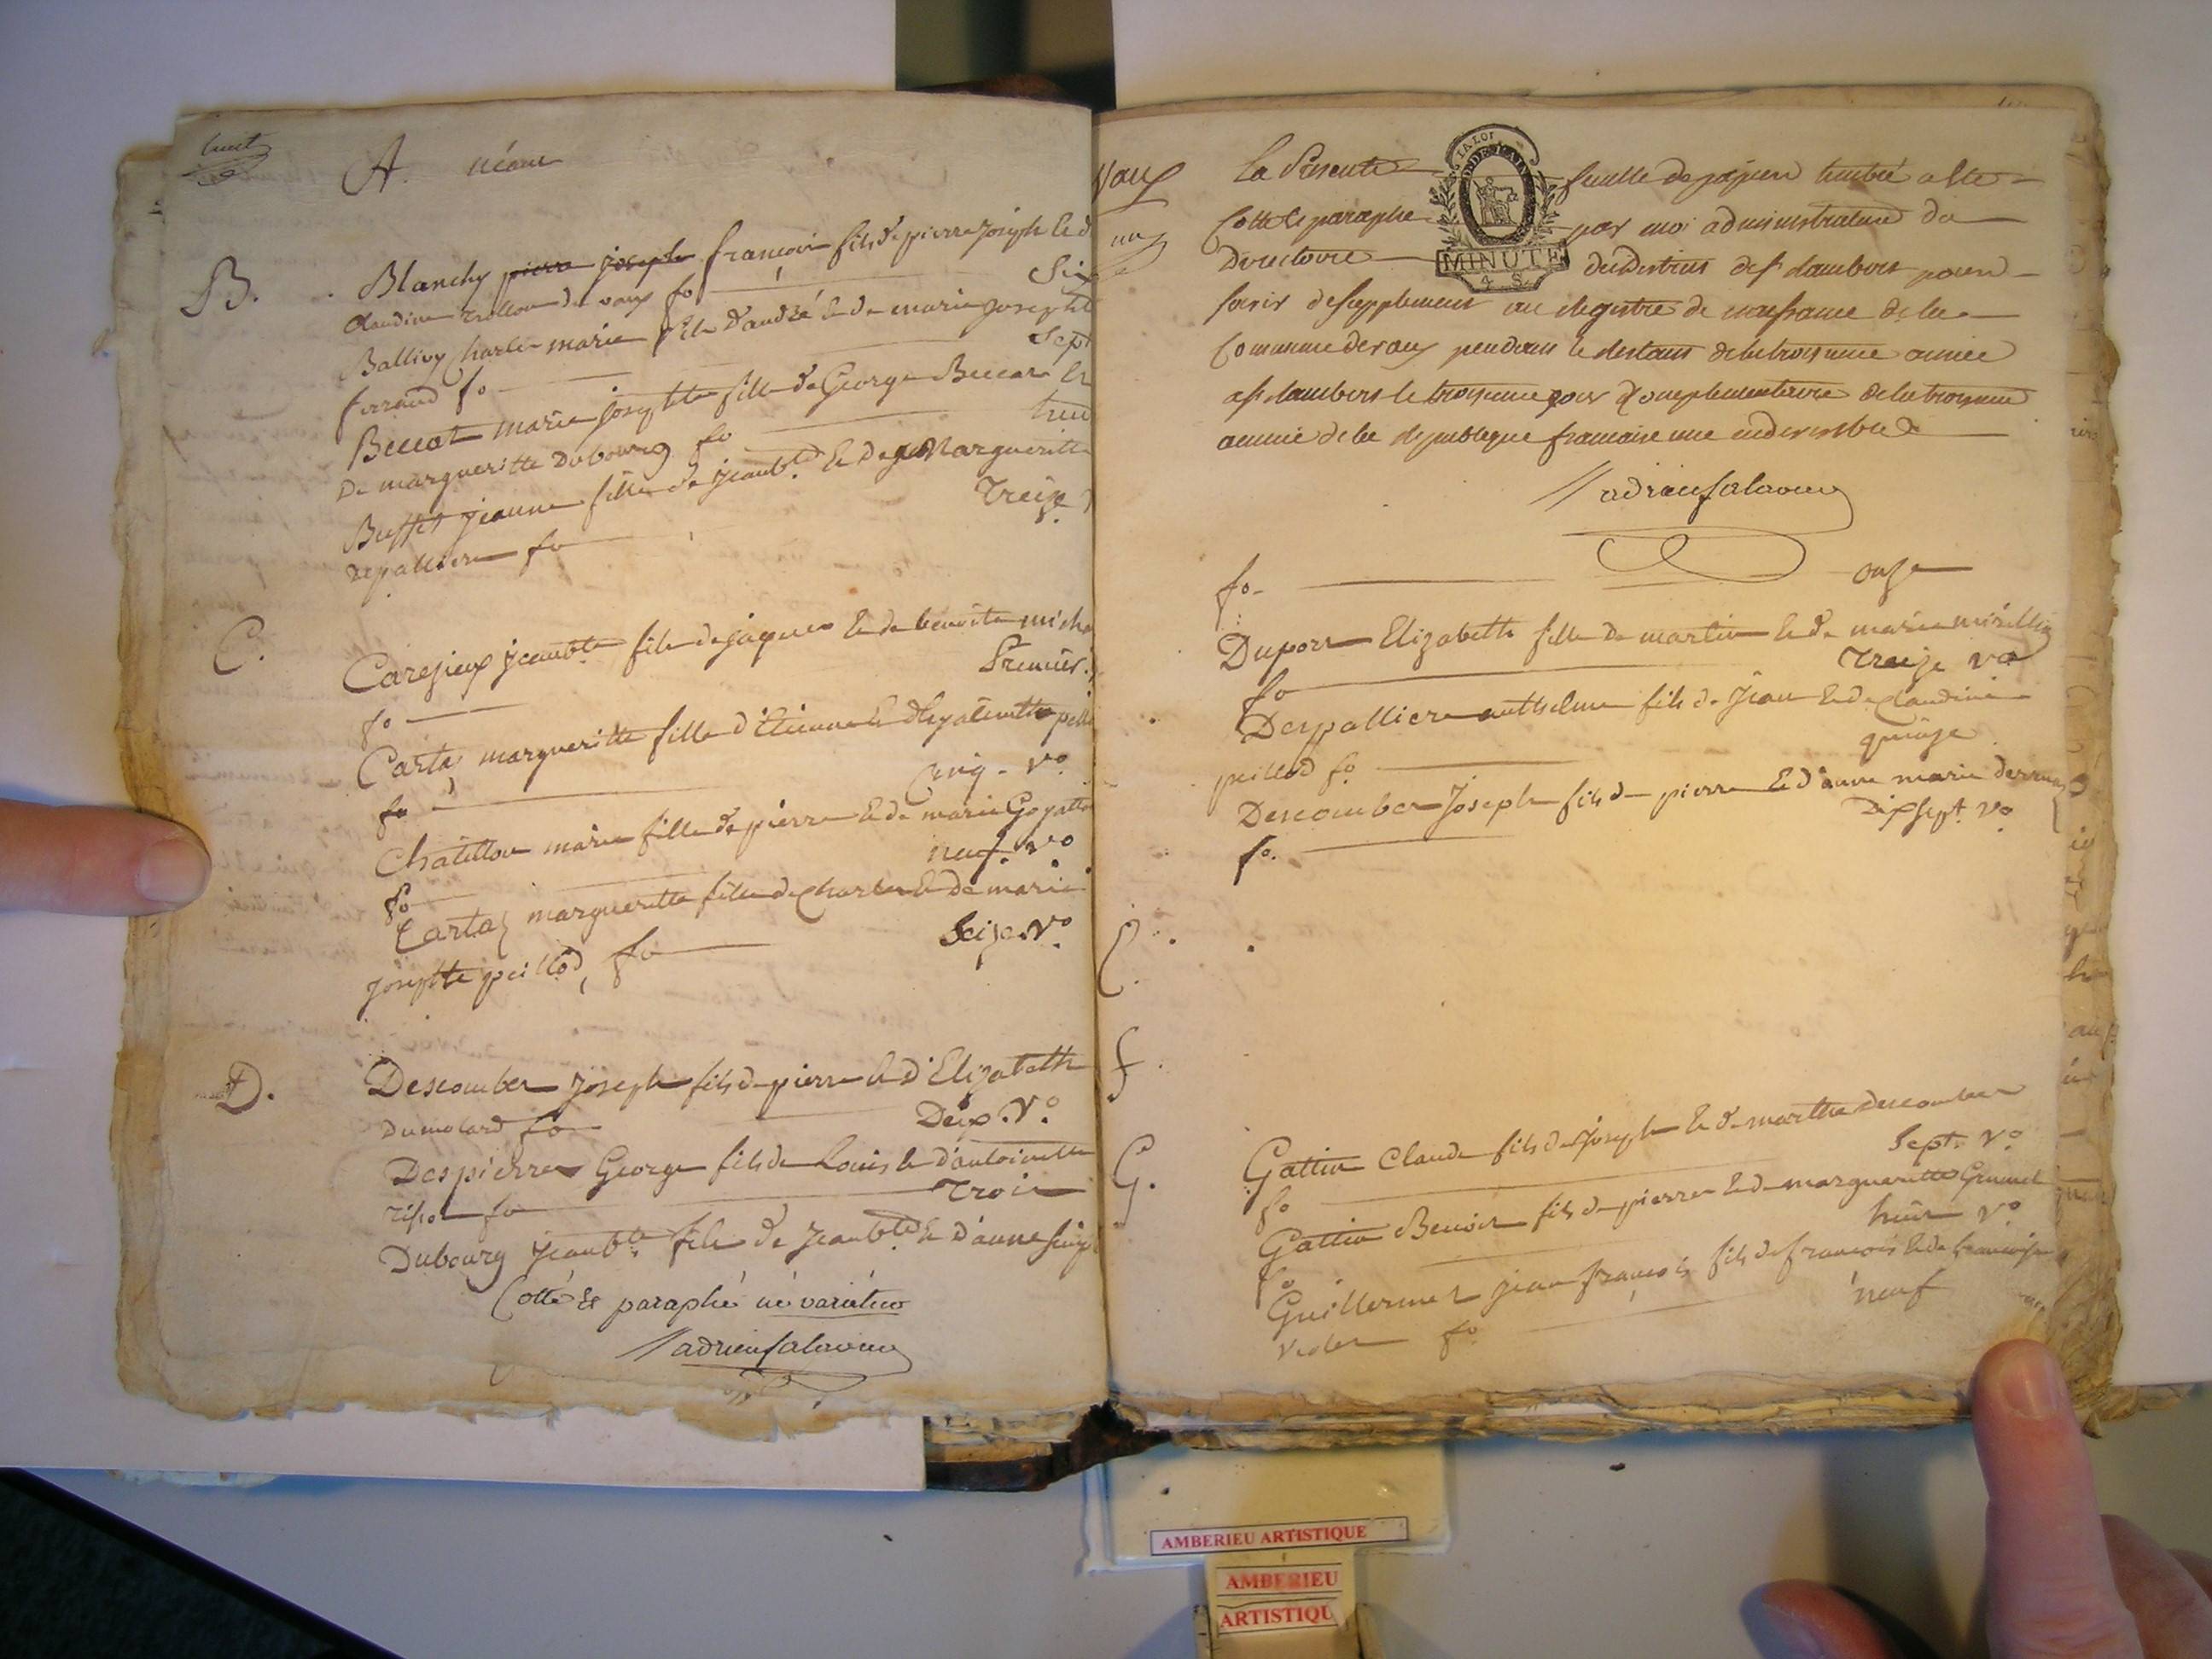 huit
A. néant
B. Blanchy pierre joseph françois fils de pierre Joseph & d
Claudine trollion de vaux fo Six
Ballivy Charles marie fils d'andré & de marie Josephte
ferrand fo Sept
Beccat marie Josephte fille de George Beccat &
De margueritte Dubourg fo huit
Buffet jeanne fille de jean bte & de Margueritte
Depallieres fo Treize
C. Carejieux jean bte fils de jaques & de benoite mich
fo Premier
Cartaz margueritte fille d'Etienne & d'hypolitte pell
fo Cinq. Vo
Chatillon marie fille de pierre & de marie Goyatton
fo neuf. Vo
Cartaz margueritte fille de Charles & de marie
josephte peillod, fo Seize. Vo
D. Descombes Joseph fils de pierre & d'Elizabeth
Dumolard fo Deux. Vo
Despierres George fils de Louis & d'antoinette
fo Trois
Dubourg jean bte fils de Jean bte & d'anne
Cotté & paraphé né variétur
adrien
Vaux
un
La Présente feuille de papier timbré a été
Cotté & paraphé par moi administrateur du
Directoire du District de St Rambert pour
servir de supplement au Registre de naissance de la
Commune de vaux pendant le restant de la troisieme année
a St Rambert le troisieme jour Complementaire de la troisieme
année de la République française une & indivisible
LA LOI
MINUTE
4 S.
adrien
fo onze
Duport Elizabeth fille de martin & de marie
fo Treize vo
Despallieres anthelme fils de Jean & de Claudine
peillod fo quinze
Descombes Joseph fils de pierre & d'anne marie
fo. Dix Sept. Vo
E.
f.
G. Gattin Claude fils de Joseph & de marthe descombes
fo Sept. Vo
Gattin Benoit fils de pierre & de margueritte Grumet
fo huit Vo
Guillermet jean françois fils de françois & de françoise
fo neuf
AMBERIEU ARTISTIQUE
AMBERIEU
ARTISTIQU